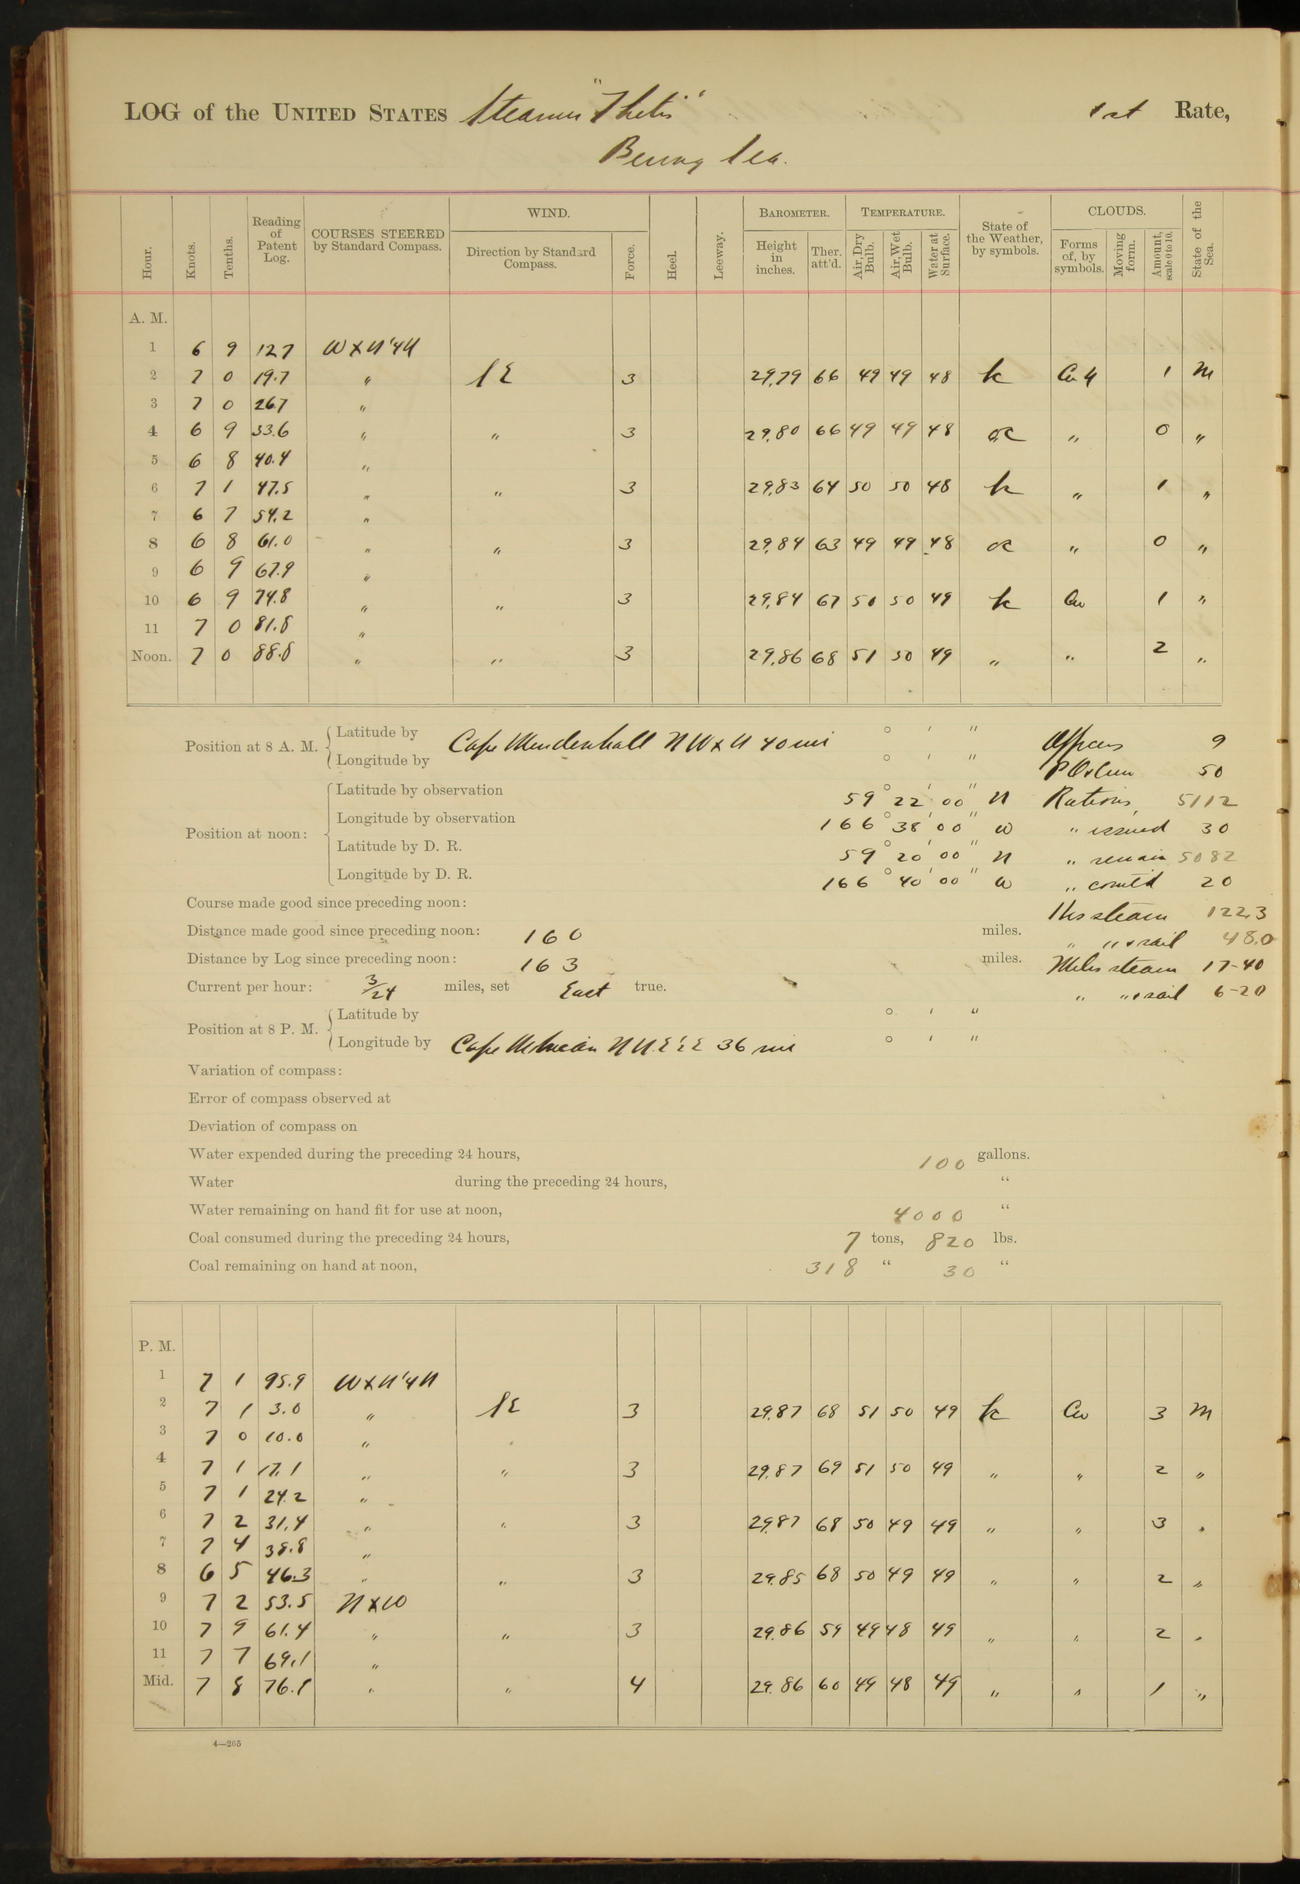 LOG of the UNITED STATES Steamer "Thetis" 1st Rate,
Bering Sea.
Hour. Knots. Tenths. Reading of Patent Log. COURSES STEERED by Standard Compass. WIND. Direction by Standard Compass. Force. Heel. Leeway. BAROMETER. Height in inches. Ther. att'd. TEMPERATURE. Air, Dry Bulb. Air, Wet Bulb. Water at Surface. State of the Weather, by symbols. CLOUDS. Forms of, by symbols. Moving form. Amount, scale 0 to 10. State of the Sea.
A. M.
1 6 9 12.7 W X N '4 N
2 7 0 19.7 " SE 3 29.79 66 49 49 48 1 M
3 7 0 26.7 "
4 6 9 33.6 " " 3 29.80 66 49 49 48 " 0 "
5 6 8 40.4 "
6 7 1 47.5 " " 3 29.83 64 50 50 48 " 1 "
7 6 7 54.2 "
8 6 8 61.0 " " 3 29.84 63 49 49 48 " 0 "
9 6 9 67.9 "
10 6 9 74.8 " " 3 29.84 67 50 50 49 Cu 1 "
11 7 0 81.8 "
Noon. 7 0 88.8 " " 3 29.86 68 51 50 49 " " 2 "
Position at 8 A. M. Latitude by ° ' " Officers 9
Longitude by Cape Mendenhall NW x N 40 mi ° ' " 50
Position at noon: Latitude by observation 59° 22' 00" N Rations, 5112
Longitude by observation 166° 38' 00" W " issued 30
Latitude by D. R. 59° 20' 00" N " remain 5082
Longitude by D. R. 166° 40' 00" W " comt'd 20
Course made good since preceding noon: Hrs steam 122.3
Distance made good since preceding noon: 160 miles. " " & sail 48.0
Distance by Log since preceding noon: 163 miles. Miles steam 17-40
Current per hour: 3/24 miles, set East true. " " & sail 6-20
Position at 8 P. M. Latitude by ° ' "
Longitude by Cape 36 mi ° ' "
Variation of compass:
Error of compass observed at
Deviation of compass on
Water expended during the preceding 24 hours, 100 gallons.
Water during the preceding 24 hours, "
Water remaining on hand fit for use at noon, 4000 "
Coal consumed during the preceding 24 hours, 7 tons, 820 lbs.
Coal remaining on hand at noon, 318 " 30 "
P. M.
1 7 1 95.9 W X N '4 N
2 7 1 3.0 " SE 3 29.87 68 51 50 49 Cu 3 M
3 7 0 10.0 "
4 7 1 17.1 " " 3 29.87 69 51 50 49 " " 2 "
5 7 1 24.2 "
6 7 2 31.4 " " 3 29.87 68 50 49 49 " " 3 "
7 7 4 38.8 "
8 6 5 46.3 " " 3 29.85 68 50 49 49 " " 2 "
9 7 2 53.5 N X W
10 7 9 61.4 " " 3 29.86 59 49 48 49 " " 2 "
11 7 7 69.1 "
Mid. 7 8 76.1 " " 4 29.86 60 49 48 49 " " 1 "
4—265